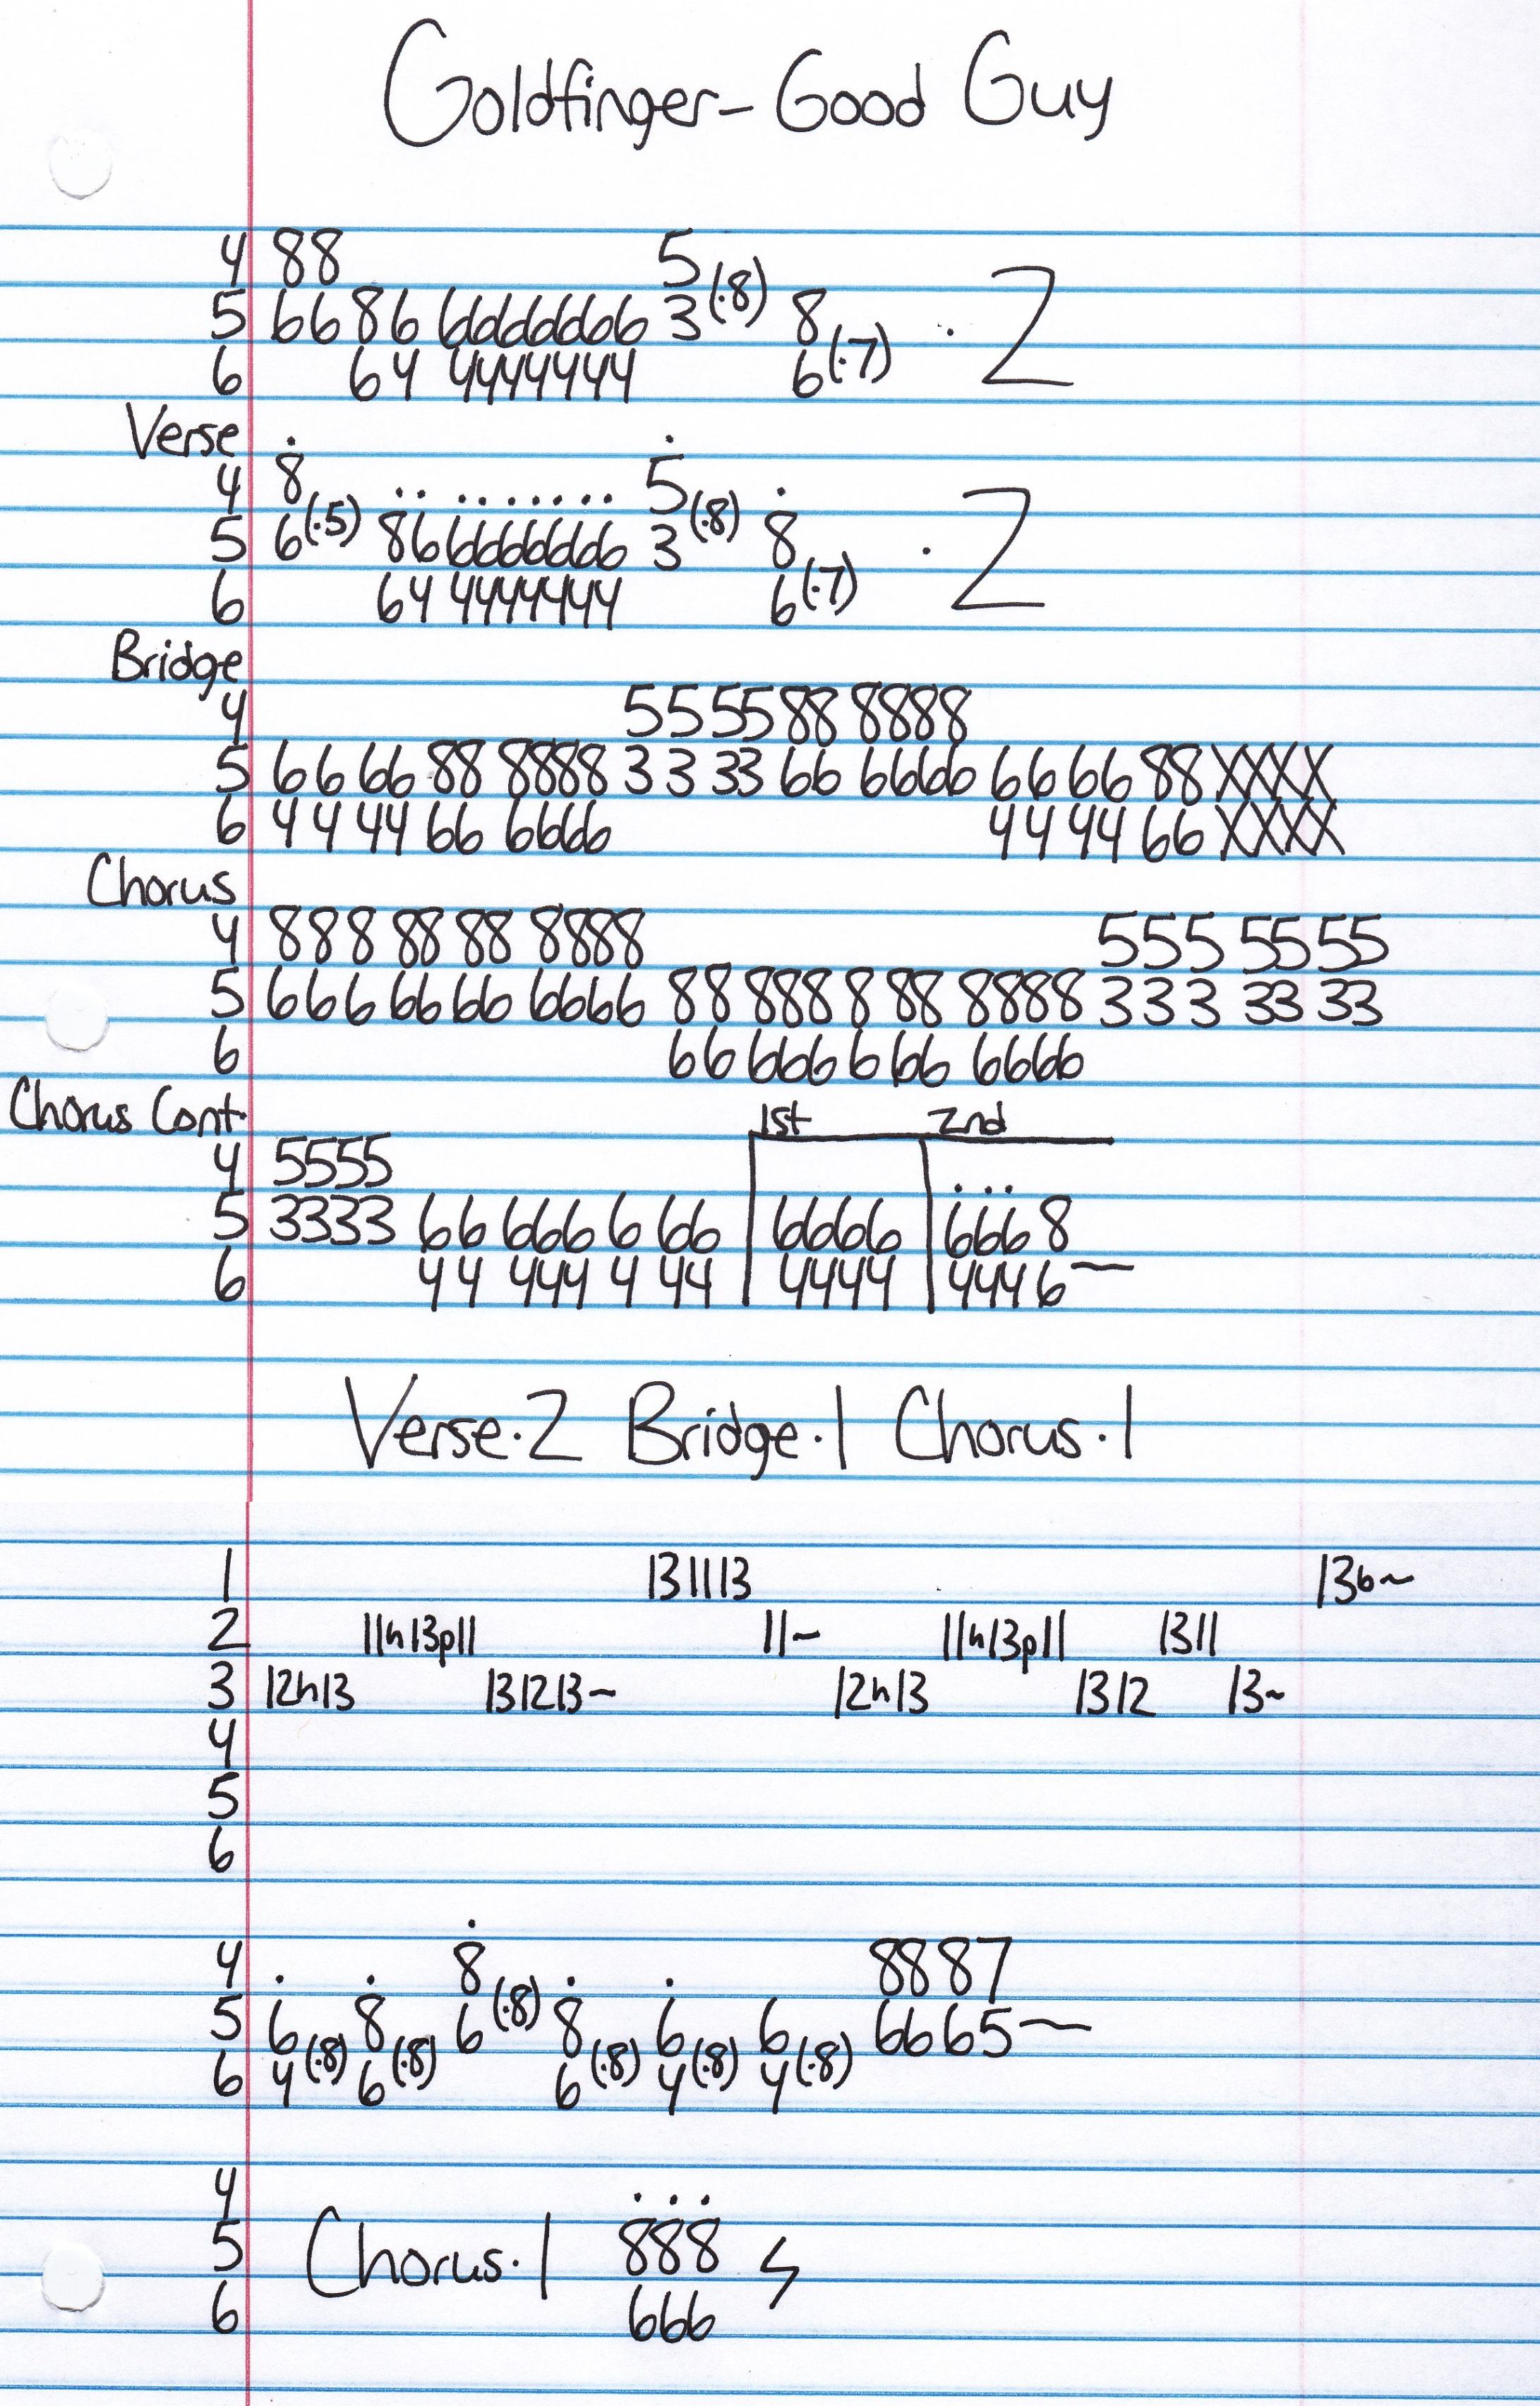 Goldfinger - Good Guy
4 88 5
5 66 86 6666666 3 (·8) 8
6 64 4444444 6 (·7) · 2
Verse
4 8 5
5 6 (·5) 86 6666666 3 (·8) 8
6 64 4444444 6 (·7) · 2
Bridge
4 5 5 55 88 8888
5 6 6 66 88 8888 3 3 33 66 6666 66 66 88 XXXX
6 4 4 44 66 6666 44 44 66 XXXX
Chorus
4 8 8 8 88 88 8888 5 5 5 55 55
5 6 6 6 66 66 6666 88 888 8 88 8888 3 3 3 33 33
6 66 666 6 66 6666
Chorus Cont.
1st 2nd
4 5555
5 3333 66 666 6 66 6666 6668
6 44 444 4 44 4444 4446~
Verse·2 Bridge·1 Chorus·1
1 131113 13b~
2 11h13p11 11~ 11h13p11 1311
3 12h13 131213~ 12h13 1312 13~
4
5
6
4 8 8887
5 6 8 6 (·8) 8 6 6 6665~
6 4 (·8) 6 (·8) 6 (·8) 4 (·8) 4 (·8)
4
5 Chorus·1 888
6 666